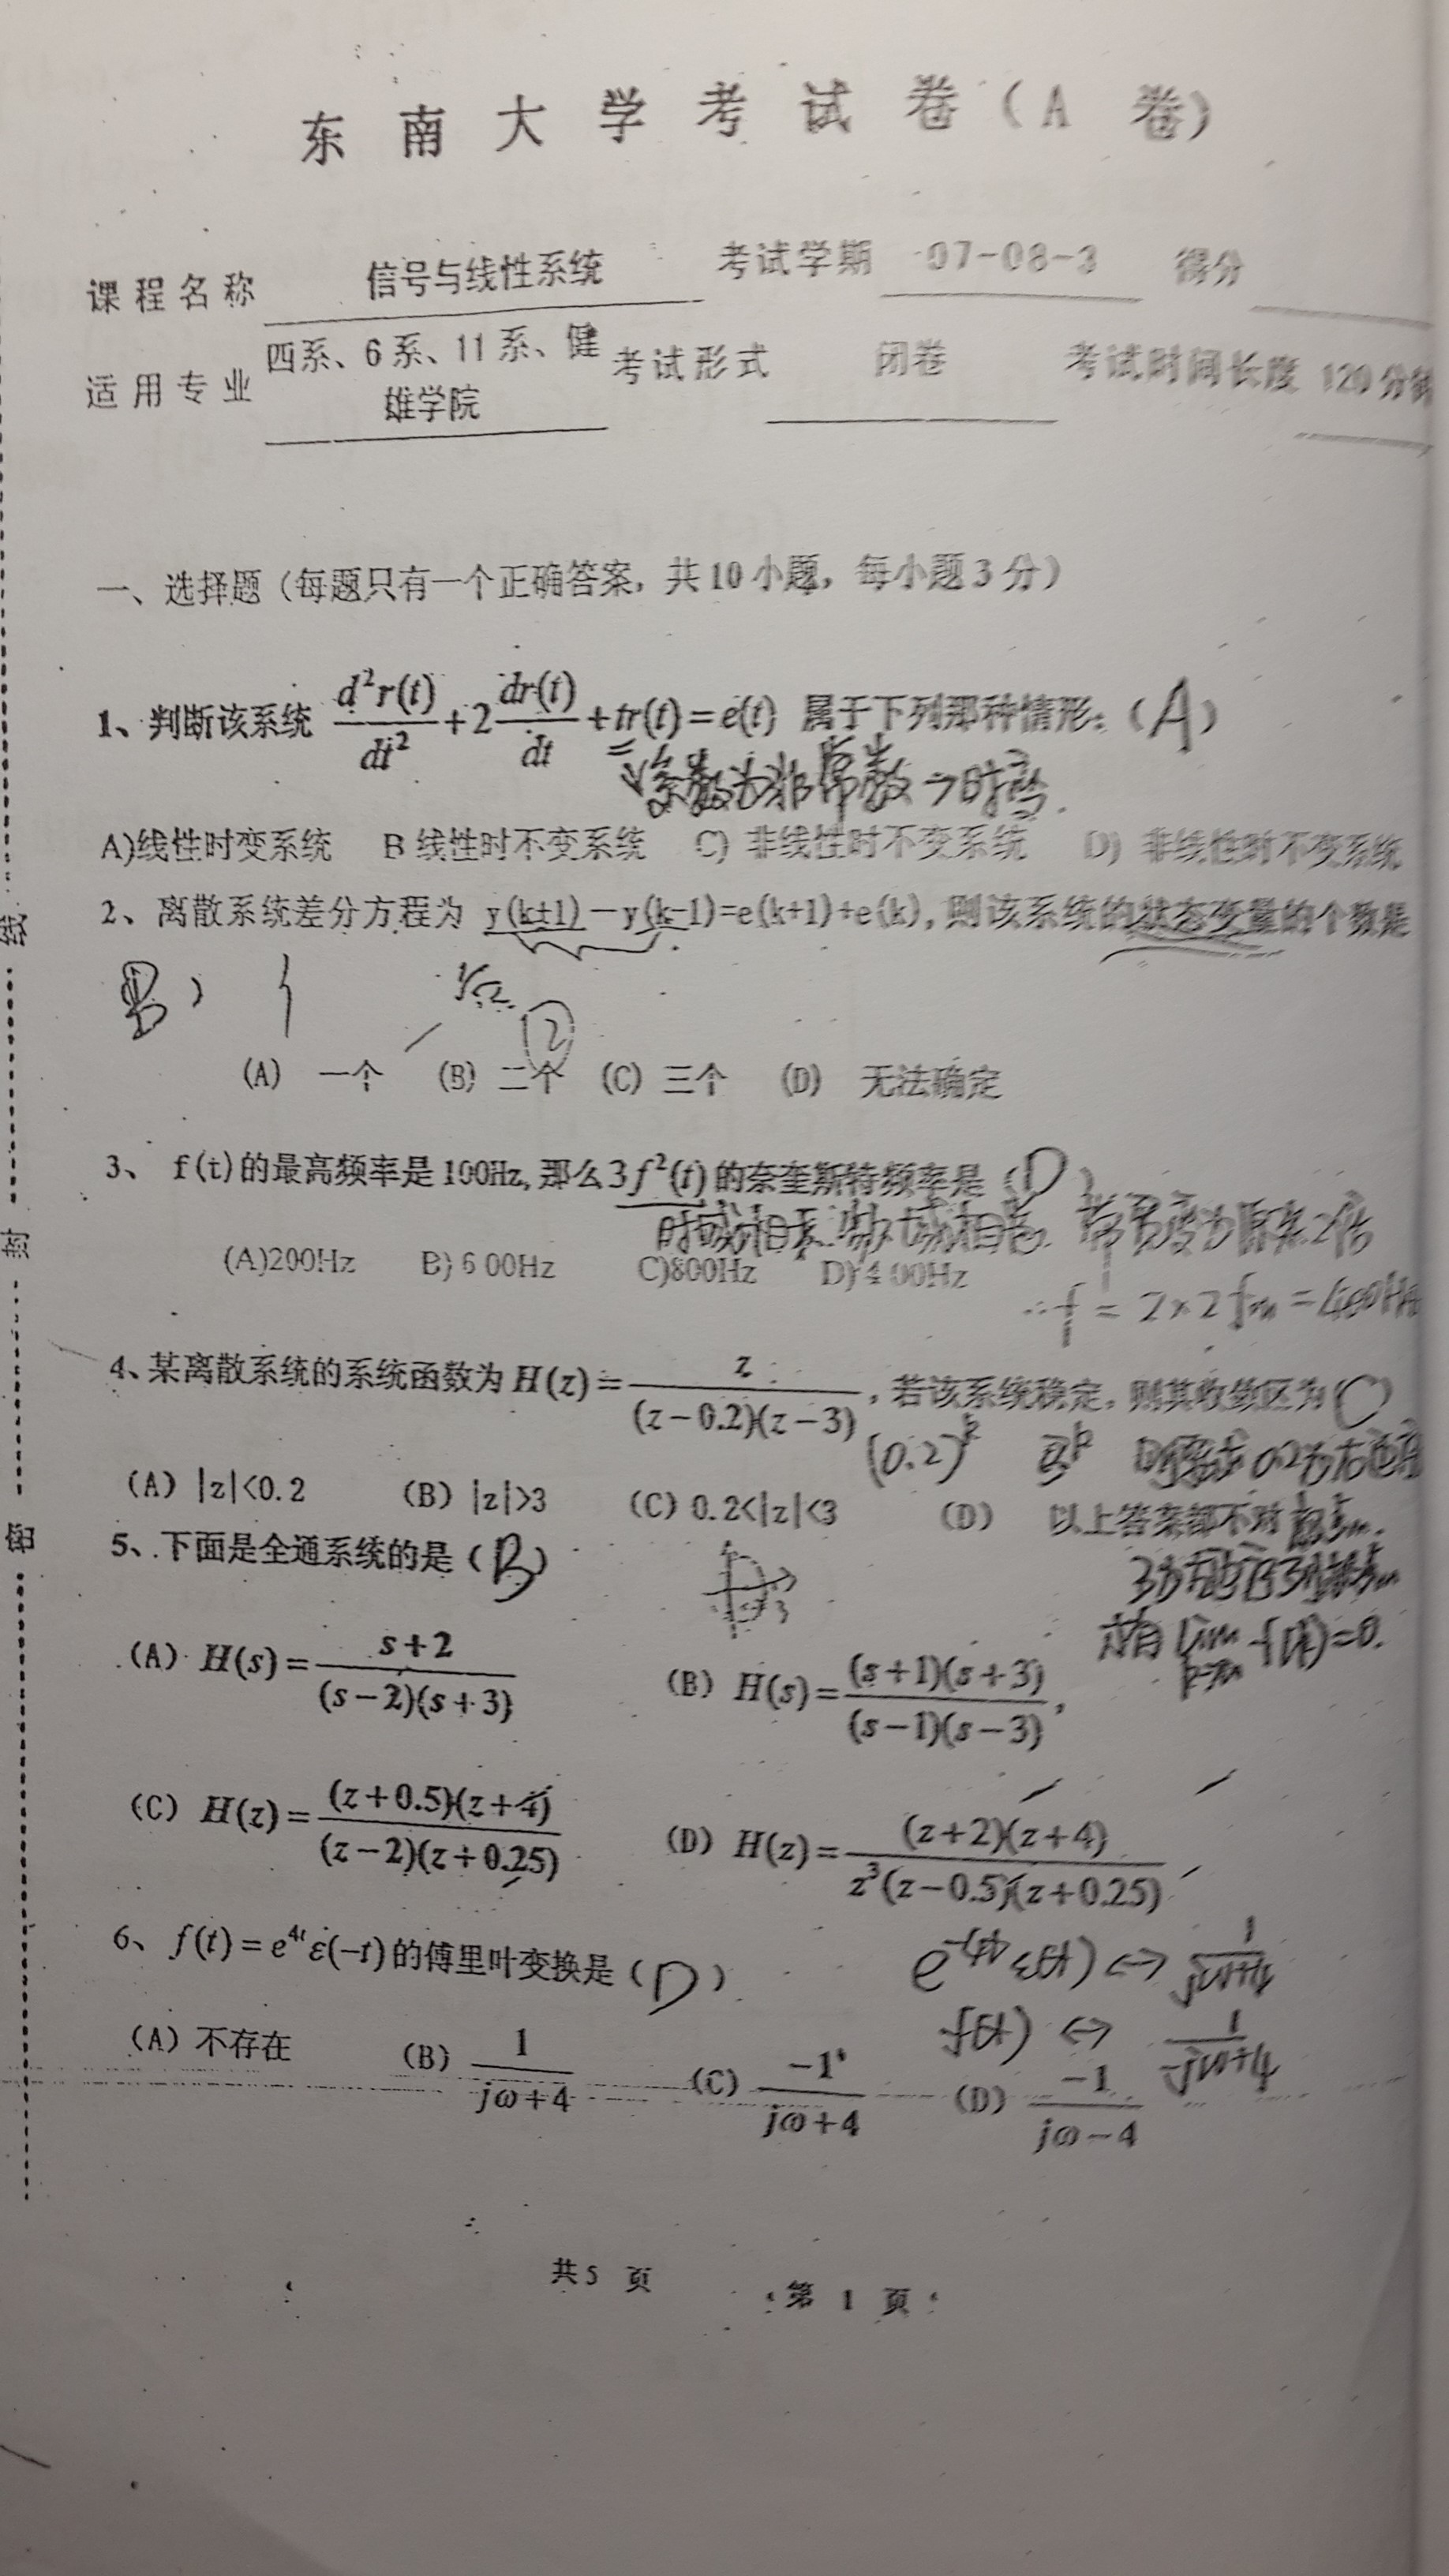 东 南 大 学 考 试 卷（A 卷）
课 程 名 称 信号与线性系统 考试学期 07-08-3 得分
适 用 专 业 四系、6系、11系、健雄学院 考试形式 闭卷 考试时间长度 120分钟
一、选择题（每题只有一个正确答案，共10小题，每小题3分）
1、判断该系统 d²r(t)/dt² + 2 dr(t)/dt + tr(t) = e(t) 属于下列那种情形：（A）
系数为非常数→时变.
A)线性时变系统 B 线性时不变系统 C) 非线性时不变系统 D) 非线性时不变系统
2、离散系统差分方程为 y(k+1)－y(k-1)=e(k+1)+e(k)，则该系统的状态变量的个数是
B ）
②
(A) 一个 (B) 二个 (C) 三个 (D) 无法确定
3、 f(t)的最高频率是100Hz,那么3f²(t)的奈奎斯特频率是（D）
时域相乘 带宽度为原来2倍
(A)200Hz B) 600Hz C)800Hz D) 400Hz
∴f = 2×2fm = 400Hz
4、某离散系统的系统函数为 H(z) = z/((z－0.2)(z－3))，若该系统稳定，则其收敛区为（C）
(0.2)^k 3^k
(A) |z|<0.2 (B) |z|>3 (C) 0.2<|z|<3 (D) 以上答案都不对
5、下面是全通系统的是（B）
(A) H(s) = (s+2)/((s－2)(s+3)) (B) H(s) = ((s+1)(s+3))/((s－1)(s－3)),
lim f(k)=0.
(C) H(z) = ((z+0.5)(z+4))/((z－2)(z+0.25)) (D) H(z) = ((z+2)(z+4))/(z³(z－0.5)(z+0.25))
6、 f(t) = e^{4t}ε(－t)的傅里叶变换是（D）
e^{-4t}ε(t) ↔ 1/(jω+4)
f(t) ↔ 1/(-jω+4)
(A) 不存在 (B) 1/(jω+4) (C) －1/(jω+4) (D) －1/(jω－4)
共5 页 第 1 页
线
剪
密